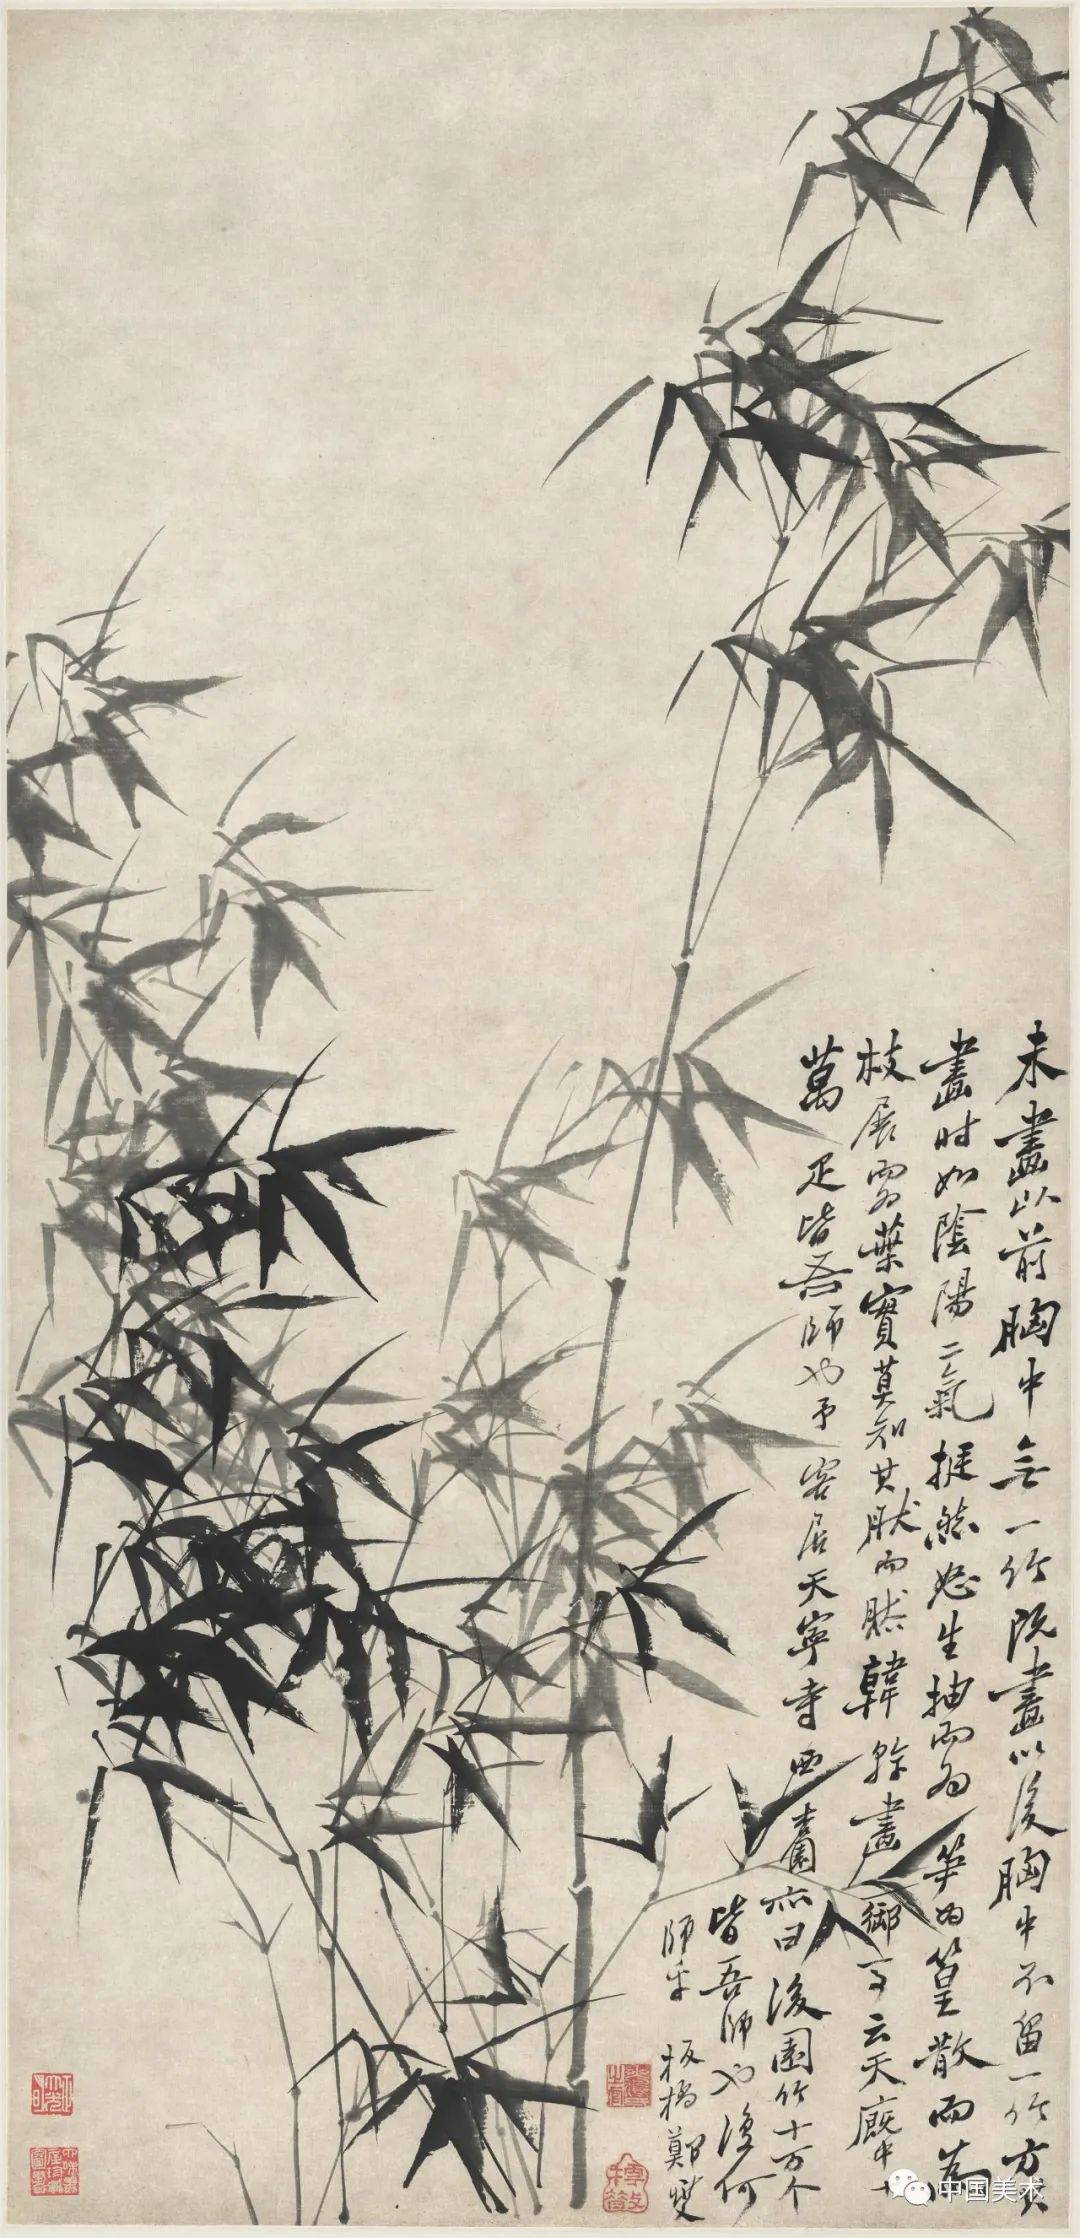 未畫以前胸中無一竹既畫以後胸中不留一竹方其
畫时如陰陽二氣挺然怒生抽而為笋為篁散而為
枝展而為葉實莫知其然而然韓幹畫御馬云天廐中十
萬疋皆吾師也予客居天寧寺西杏園亦曰後園竹十万个
皆吾師也復何
師乎 板橋鄭燮
樗散
中国美术